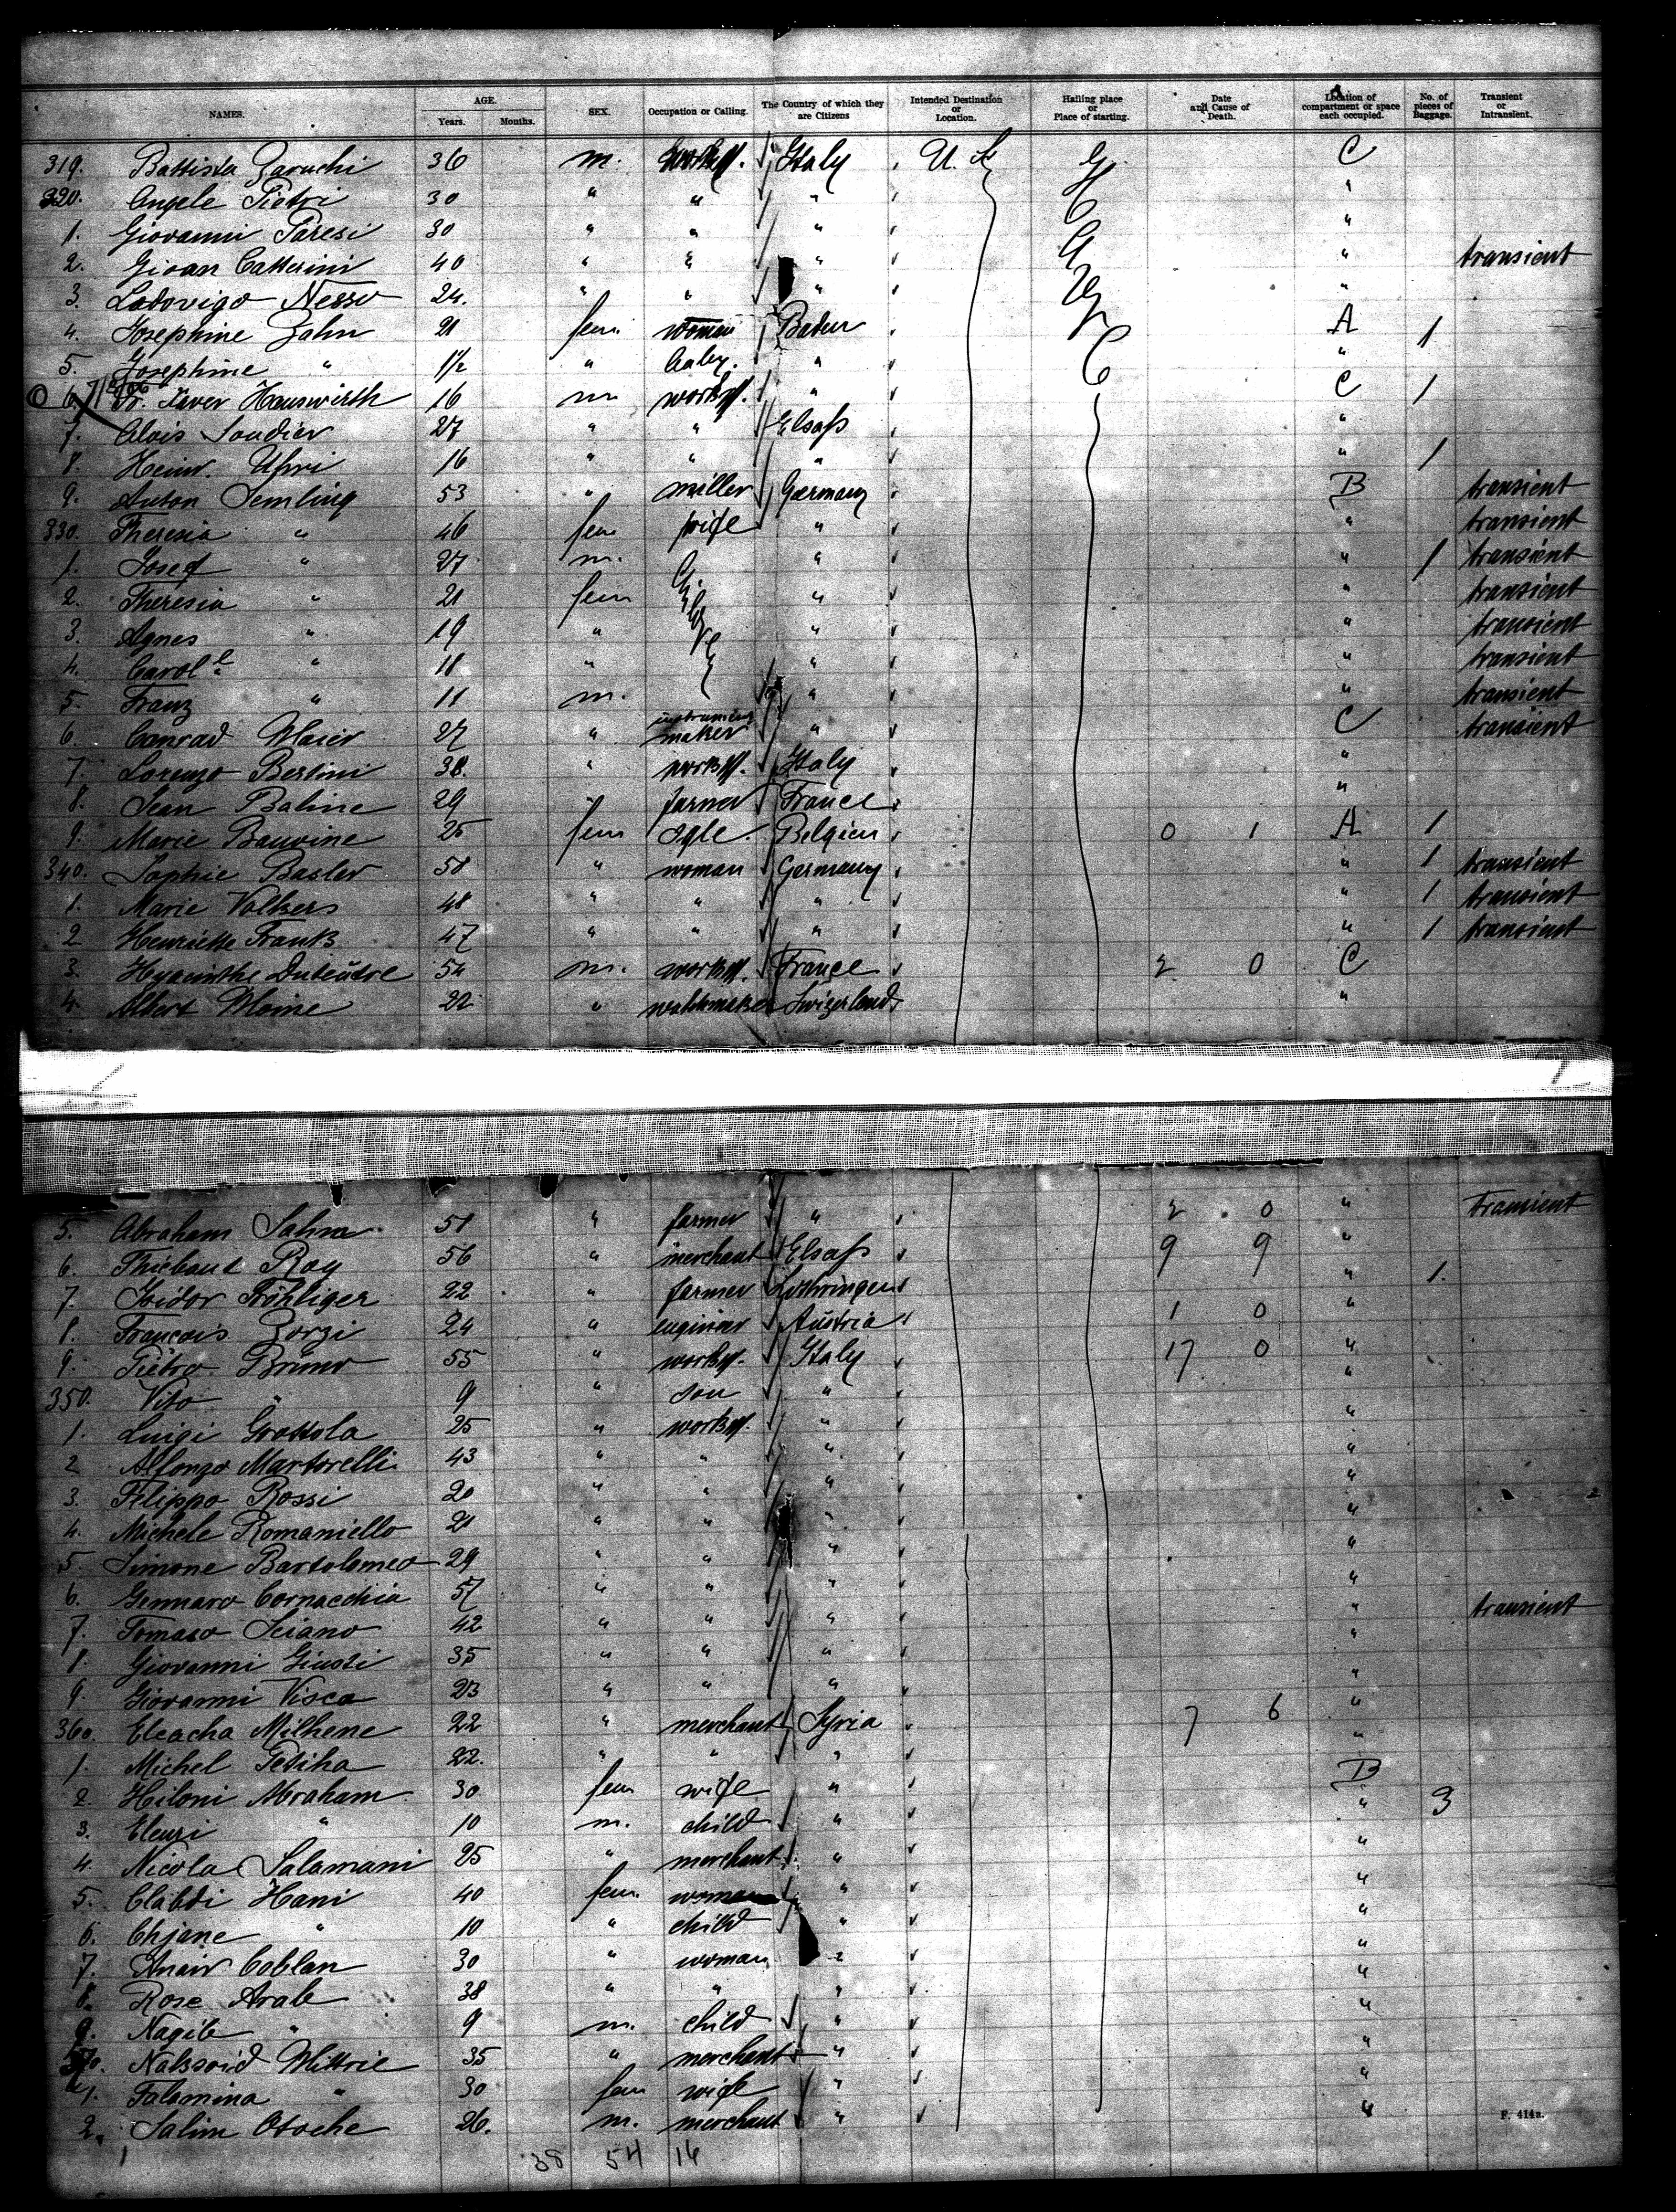 NAMES. AGE. Years. Months. SEX. Occupation or Calling. The Country of which they are Citizens Intended Destination or Location. Hailing place or Place of starting. Date and Cause of Death. Location of compartment or space each occupied. No. of pieces of Baggage. Transient or Intransient.
319. Battista Zaruchi 36 m. Italy U. S. C
320. Angele Pietri 30 " " " "
1. Giovanni Paresi 30 " " " "
2. Giovan Catterini 40 " " " " transient
3. Lodovigo Nesso 24. " " " "
4. Josephine Zahn 21 fem. woman Baden A 1
5. Josephine " 1½ " baby. " "
6. Fr. Xaver Hauswirth 16 m workm. " C 1
7. Alois Soudier 27 " " Elsaß "
8. Heinr. 16 " " " " 1
9. Anton Semling 53 " miller Germany B transient
330. Theresia " 46 fem wife " " transient
1. Josef " 27 m. " " 1 transient
2. Theresia " 21 fem " " transient
3. Agnes " 19 " " " transient
4. Carole " 18 " " " transient
5. Franz " 11 m. " " transient
6. Conrad Maier 27 " instrument maker " C transient
7. Lorenzo Bertini 38. " workm. Italy "
8. Jean Baline 29 " farmer France "
9. Marie Bauvine 25 fem sgle. Belgien 0 1 A 1
340. Sophie Basler 58 " woman Germany " 1 transient
1. Marie Volkers 48 " " " " 1 transient
2 Henriette Frank 47 " " " " 1 transient
3. Hyacinthe Duteûtre 54 m. workm. France 2 0 C
4. Albert Moine 22 " watchmaker Swizerland "
5. Abraham Salm 51 " farmer " 2 0 " transient
6. Thiébaud Roy 56 " merchant Elsaß 9 9 "
7. Isidor Fröhliger 22 " farmer Lothringen " 1.
8. François Zorzi 24 " engineer Austria 1 0 "
9. Pietro Bruno 55 " workm. Italy 17 0 "
350. Vito " 9 " son " "
1. Luigi Grottola 25 " workm. " "
2 Alfonzo Martorelli 43 " " " "
3. Filippo Rossi 20 " " " "
4. Michele Romaniello 21 " " " "
5 Simone Bartolomeo 29 " " " "
6. Gennaro Cornacchia 57 " " " "
7. Tomaso Sciano 42 " " " " transient
8. Giovanni Giusti 35 " " " "
9. Giovanni Visca 23 " " " "
360. Eleacha Milhene 22 " merchant Syria 7 6 "
1. Michel Fetiha 22. " " " "
2. Hiloni Abraham 30 fem wife " B
3. Eleuzi " 10 m. child " " 3
4. Nicola Salamani 25 " merchant " "
5. Clabdi Hani 40 fem. woman " "
6. Chjane " 10 " child " "
7. Anair Coblan 30 " woman " "
8. Rose Arab 38 " " " "
9. Nagib " 9 m. child " "
370. Nakssoid Mittrie 35 " merchant " "
1. Falomina " 30 fem wife " "
2. Salim Otoche 26. m. merchant " "
F. 414a.
38 54 16